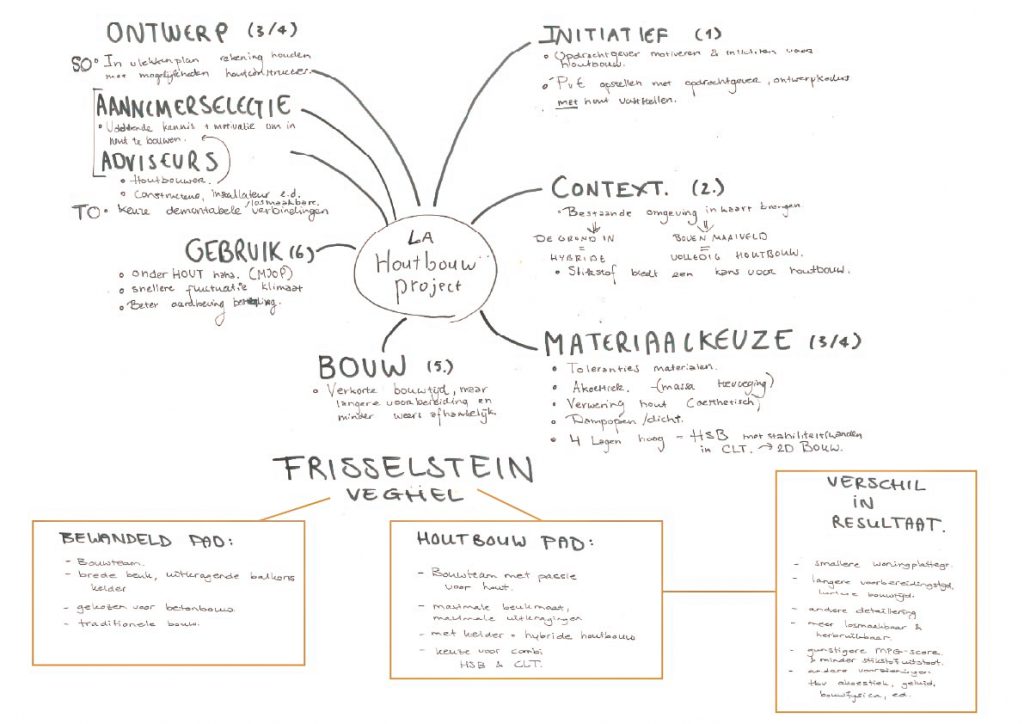 ONTWERP (3/4)
SO • In vlekkenplan rekening houden
met mogelijkheden houtconstructies.
AANNEMERSELECTIE
• Voldoende kennis + motivatie om in
hout te bouwen.
ADVISEURS
• Houtbouwer.
• Constructeur, installateur e.d.
TO • keuze demontabele/losmaakbare verbindingen
GEBRUIK (6)
• onder HOUT hand. (MJOP)
• snellere fluctuatie klimaat
• Beter aardbeving
BOUW (5.)
• Verkorte bouwtijd, maar
langere voorbereiding en
minder weers afhankelijk.
LA
Houtbouw
project
INITIATIEF (1)
• Opdrachtgever motiveren & voor
houtbouw.
• PvE opstellen met opdrachtgever, ontwerpkaders
met hout vaststellen.
CONTEXT. (2.)
• Bestaande omgeving in kaart brengen
DE GROND IN
=
HYBRIDE
BOVEN MAAIVELD
=
VOLLEDIG HOUTBOUW.
• Stikstof biedt een kans voor houtbouw.
MATERIAALKEUZE (3/4)
• Toleranties materialen.
• Akoestiek. - (massa toevoeging)
• Verwering hout (aesthetisch)
• Dampopen/dicht.
• 4 Lagen hoog - HSB met stabiliteitswanden
in CLT. → 2D BOUW.
FRISSELSTEIN
VEGHEL
BEWANDELD PAD:
- Bouwteam.
- brede beuk, uitkragende balkons
kelder
- gekozen voor betonbouw.
- traditionele bouw.
HOUTBOUW PAD:
- Bouwteam met passie
voor hout.
- maximale beukmaat,
maximale uitkragingen
- met kelder = hybride houtbouw
- keuze voor combi
HSB & CLT.
VERSCHIL
IN
RESULTAAT.
- smallere woningplattegr.
- langere voorbereidingstijd,
kortere bouwtijd.
- andere detaillering
- meer losmaakbaar &
herbruikbaar.
- gunstigere MPG-score
& minder stikstofuitstoot.
- andere voorzieningen
tbv akoestiek, geluid,
bouwfysica, ed.